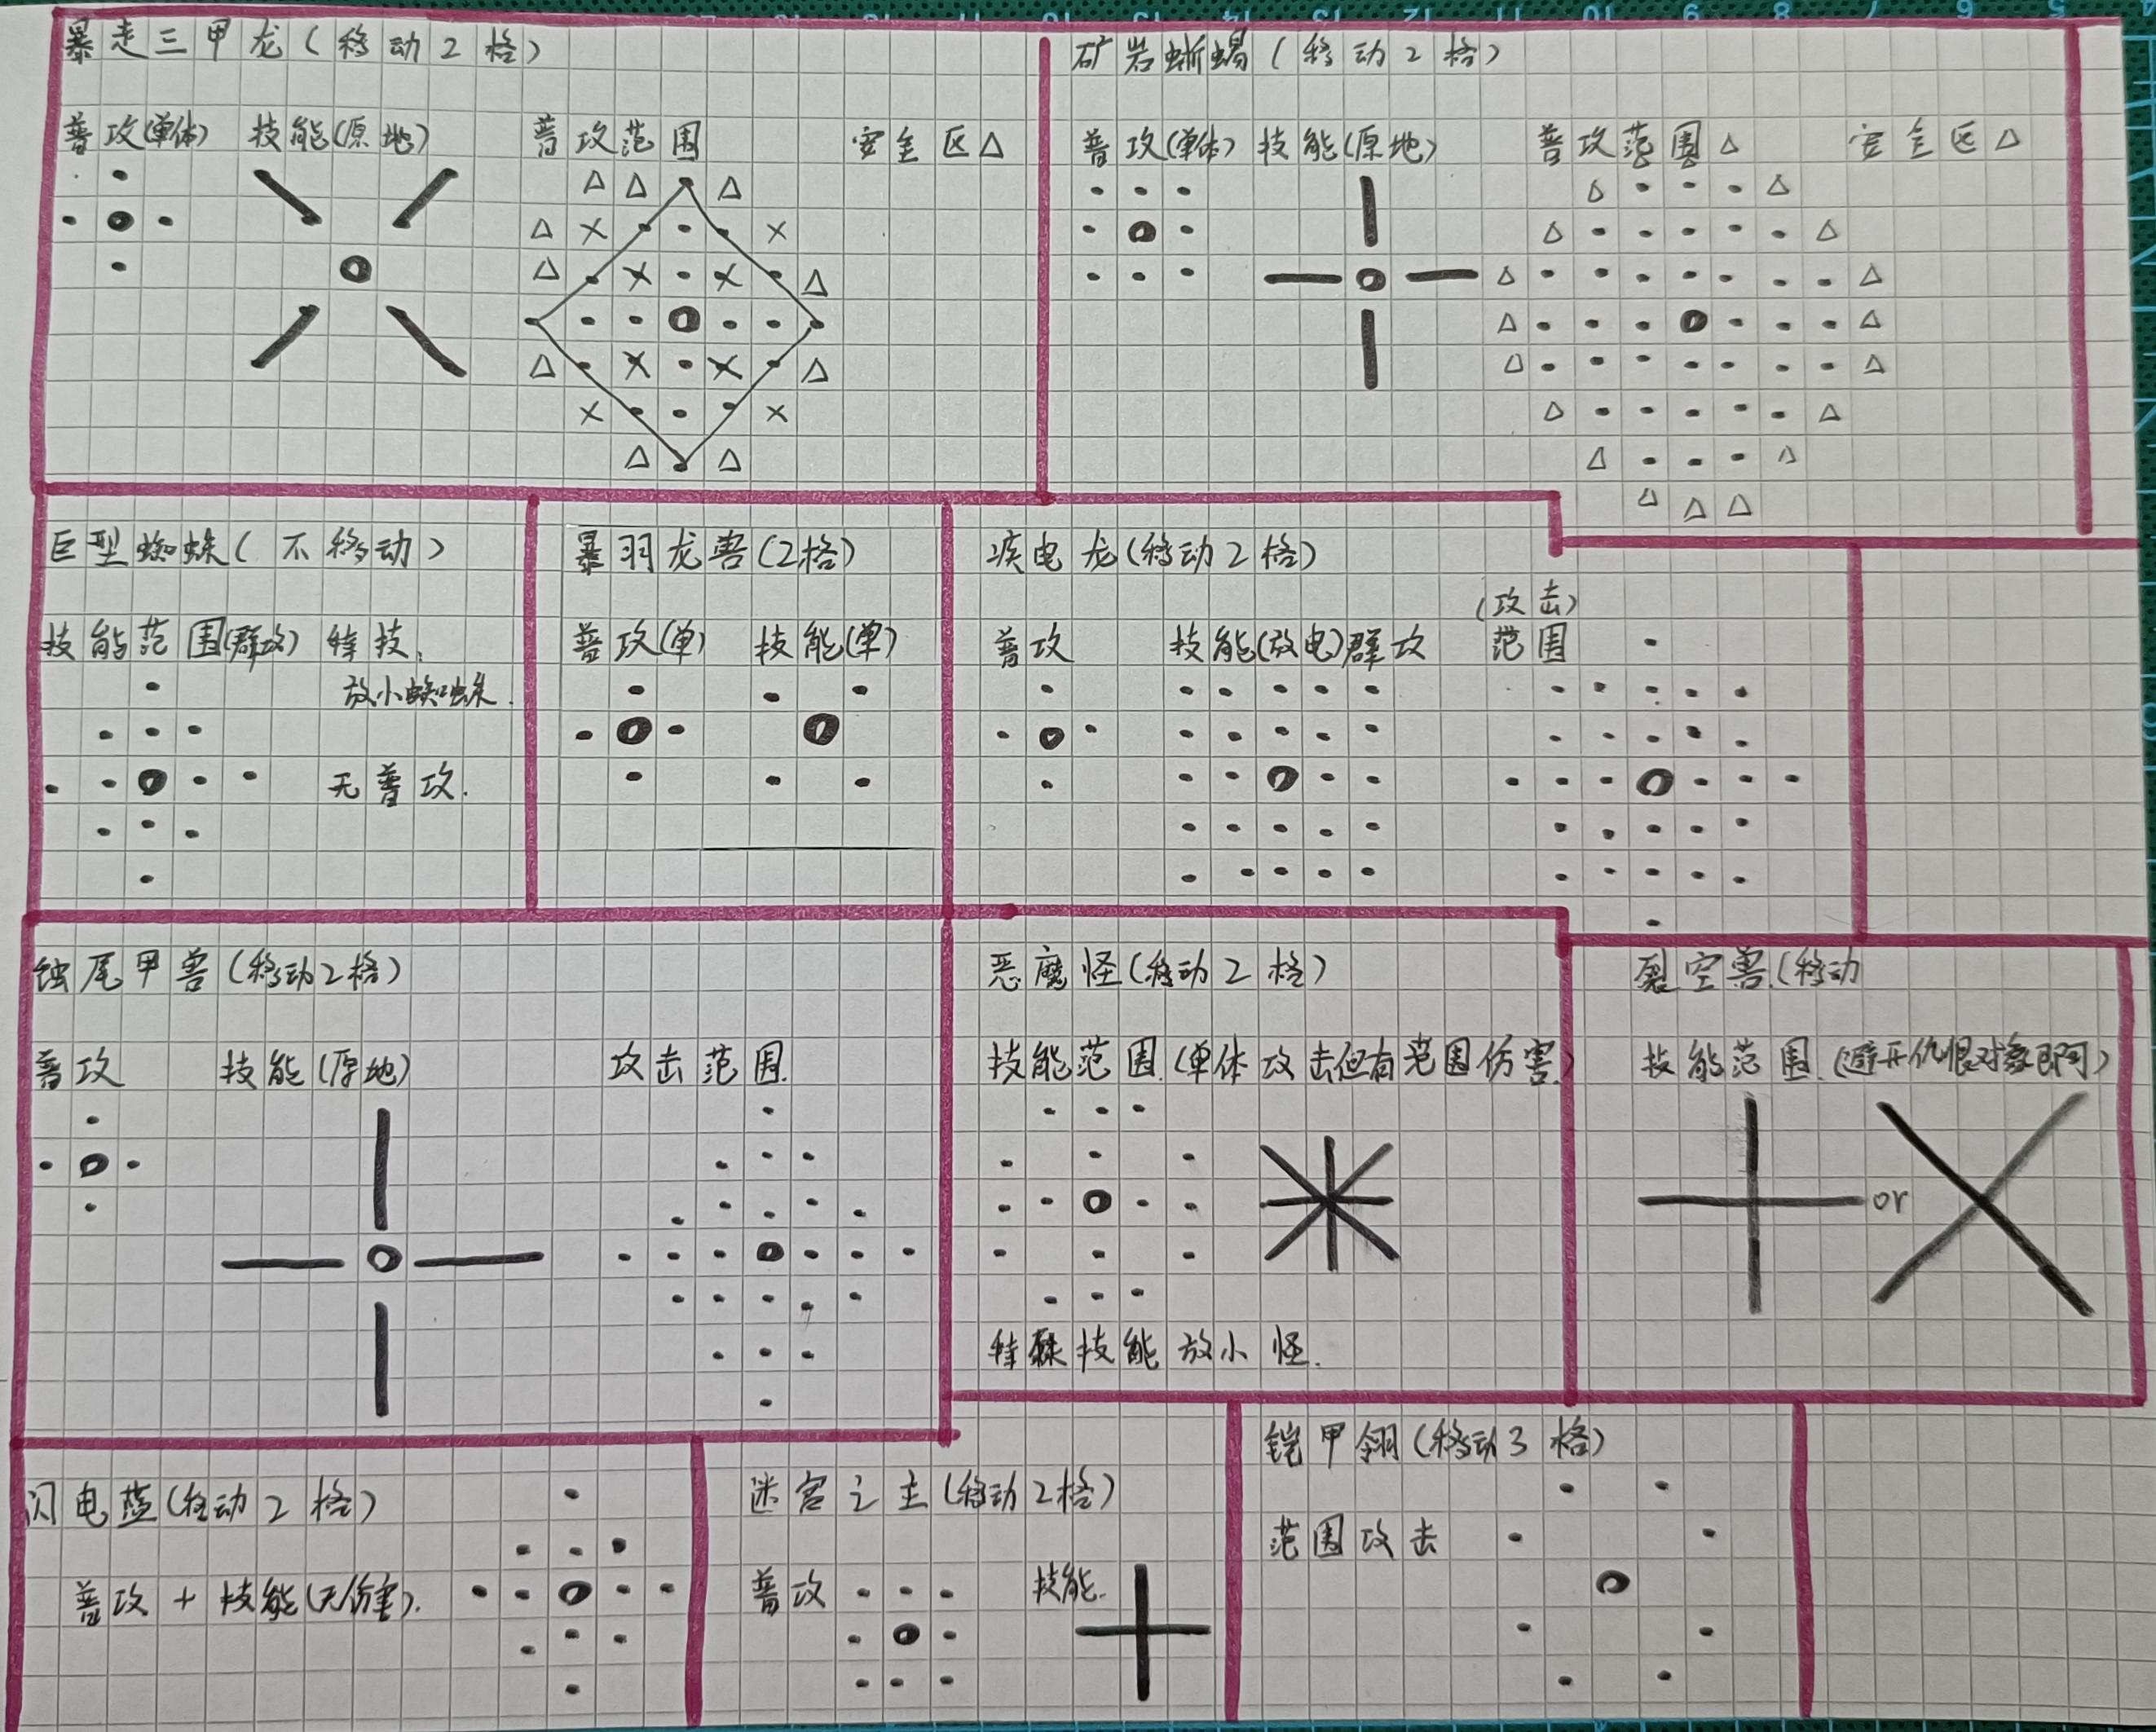 暴走三甲龙(移动2格)
普攻(单体) 技能(原地) 普攻范围 安全区△
矿岩蜥蜴(移动2格)
普攻(单体) 技能(原地) 普攻范围△ 安全区△
巨型蜘蛛(不移动)
技能范围(群攻) 特技:
放小蜘蛛.
无普攻.
暴羽龙兽(2格)
普攻(单) 技能(单)
疾电龙(移动2格)
普攻 技能(放电)群攻
(攻击)
范围
蚀尾甲兽(移动2格)
普攻 技能(原地) 攻击范围.
恶魔怪(移动2格)
技能范围.(单体攻击但有范围伤害.)
特殊技能放小怪.
裂空兽.(移动
技能范围.(避开仇恨对象即可)
or
闪电蓝(移动2格)
普攻+技能(无伤害).
迷宫之主(移动2格)
普攻 技能.
铠甲翎(移动3格)
范围攻击
16 15 14 13 12 11 10 9 8 7 6 5